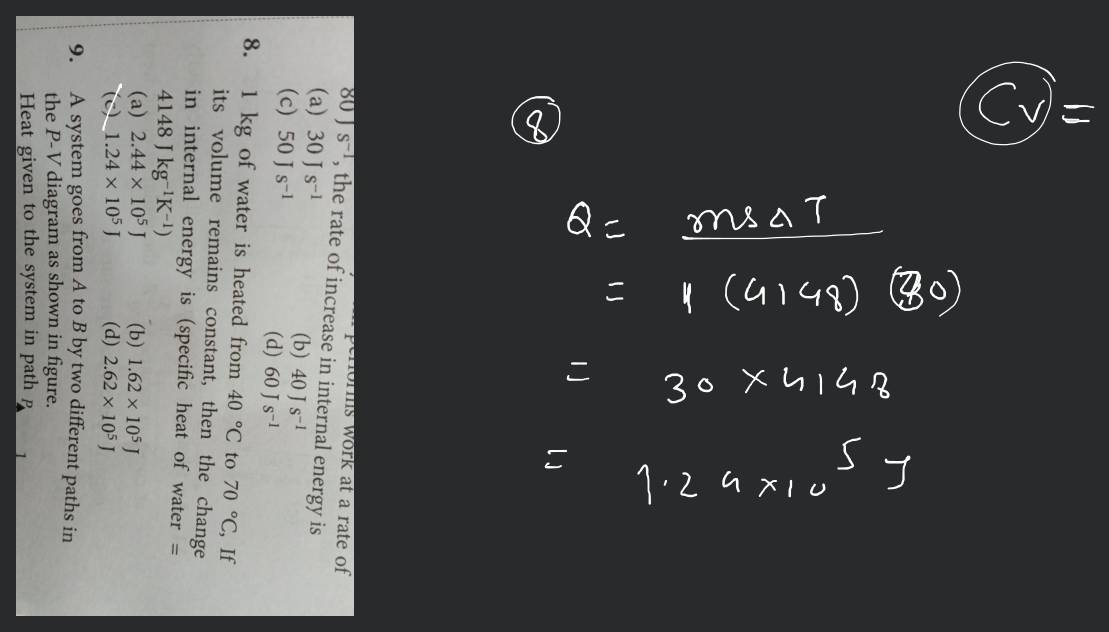 80 J s⁻¹, the rate of increase in internal energy is
(a) 30 J s⁻¹ (b) 40 J s⁻¹
(c) 50 J s⁻¹ (d) 60 J s⁻¹
8. 1 kg of water is heated from 40 °C to 70 °C, If
its volume remains constant, then the change
in internal energy is (specific heat of water =
4148 J kg⁻¹K⁻¹)
(a) 2.44 × 10⁵ J (b) 1.62 × 10⁵ J
(c) 1.24 × 10⁵ J (d) 2.62 × 10⁵ J
9. A system goes from A to B by two different paths in
the P-V diagram as shown in figure.
Heat given to the system in path
8
Cv =
Q = msΔT
= 1 (4148) (30)
= 30 × 4148
= 1.24 × 10⁵ J